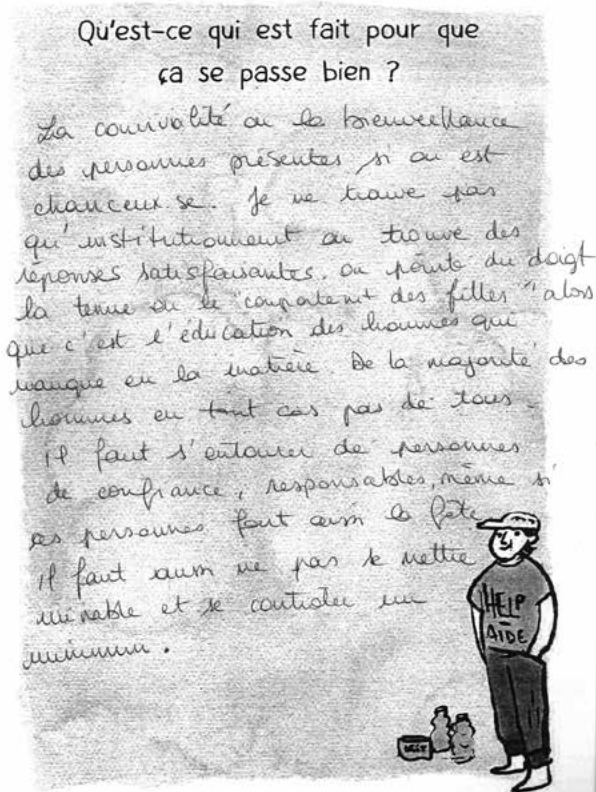 Qu'est-ce qui est fait pour que
ça se passe bien ?
La convivalité ou la bienveillance
des personnes présentes si on est
chanceux·se. Je ne trouve pas
qu'institutionnent on trouve des
réponses satisfaisantes. On pointe du doigt
la tenue ou le "comportemt des filles" alors
que c'est l'éducation des hommes qui
manque en la matière. De la majorité des
hommes en tout cas pas de tous.
il faut s'entourer de personnes
de confiance, responsables, même si
ces personnes font aussi la fête
il faut aussi ne pas se mettre
minable et se controler un
minimum.
HELP
-
AIDE